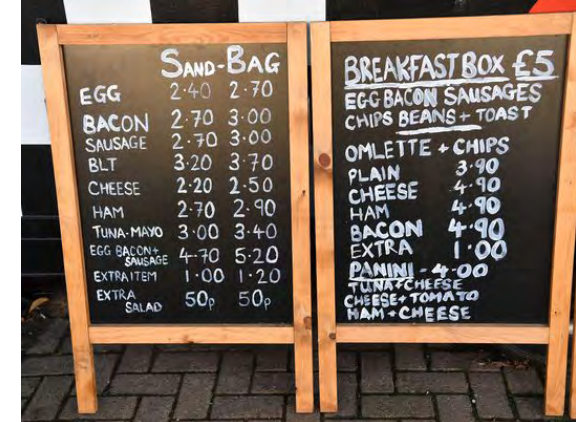 SAND-BAG
EGG 2·40 2·70
BACON 2·70 3·00
SAUSAGE 2·70 3·00
BLT 3·20 3·70
CHEESE 2·20 2·50
HAM 2·70 2·90
TUNA-MAYO 3·00 3·40
EGG BACON+
SAUSAGE 4-70 5·20
EXTRA ITEM 1·00 1·20
EXTRA
SALAD 50p 50p
BREAKFAST BOX £5
EGG BACON SAUSAGES
CHIPS BEANS + TOAST
OMLETTE + CHIPS
PLAIN 3·90
CHEESE 4·90
HAM 4·90
BACON 4·90
EXTRA 1·00
PANINI - 4·00
TUNA+CHEESE
CHEESE+TOMATO
HAM+CHEESE